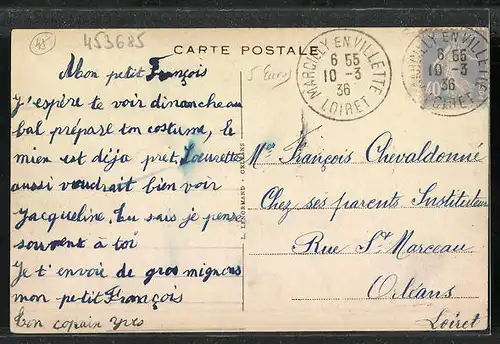 453685
CARTE POSTALE
5 Euros
Mon petit François
J'espère te voir dimanche au
bal prépare ton costume, le
mien est déja prêt, Loeurette
aussi voudrait bien voir
Jacqueline, tu sais je pense
souvent à toi
Je t'envoie de gros mignons
mon petit François
Ton copain yves
L. LENORMAND - ORLEANS
MARCILLY-EN-VILLETTE
6 55
10 - 3
36
LOIRET
MARCILLY-EN-VILLETTE
6 55
10 - 3
36
LOIRET
40
Mer François Chevaldonné
Chez ses parents Instituteurs
Rue St Marceau
Orléans
Loiret